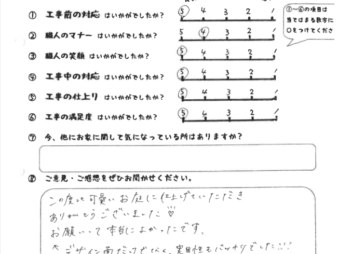 ① 工事前の対応 はいかがでしたか? 5 4 3 2 1
② 職人のマナー はいかがでしたか? 5 4 3 2 1
③ 職人の笑顔 はいかがでしたか? 5 4 3 2 1
④ 工事中の対応 はいかがでしたか? 5 4 3 2 1
⑤ 工事の仕上り はいかがでしたか? 5 4 3 2 1
⑥ 工事の満足度 はいかがでしたか? 5 4 3 2 1
①~⑥の項目は
当てはまる数字に
○をつけてくださ
⑦ 今、他にお家に関して気になっている所はありますか?
⑧ ご意見・ご感想をぜひお聞かせください。
この度は可愛いお庭に仕上げていただき
ありがとうございました♡
お願いして本当によかったです。
デザイン面だけでなく、実用性もバッチリでした!!!